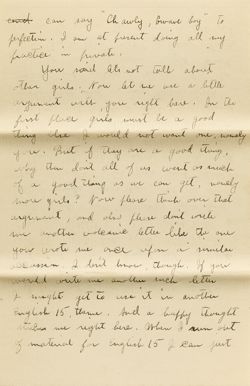 can say "Chawly, bwave boy" to
perfection. I am at present doing all my
practice in private.
You said let's not talk about
other girls. Now let me use a little
argument with you right here. In the
first place girls must be a good
thing else I would not want one, namely
you. But if they are a good thing,
why then don't all of us want as much
of a good thing as we can get, namely
more girls? Now please think over that
argument, and also please don't write
me another volcanic letter like the one
you wrote me once upon a similar
occasion. I don't know, though. If you
would write me another such letter
I might get to use it in another
English 15 theme. And a happy thought
strikes me right here. When I run out
of material for English 15 I can just